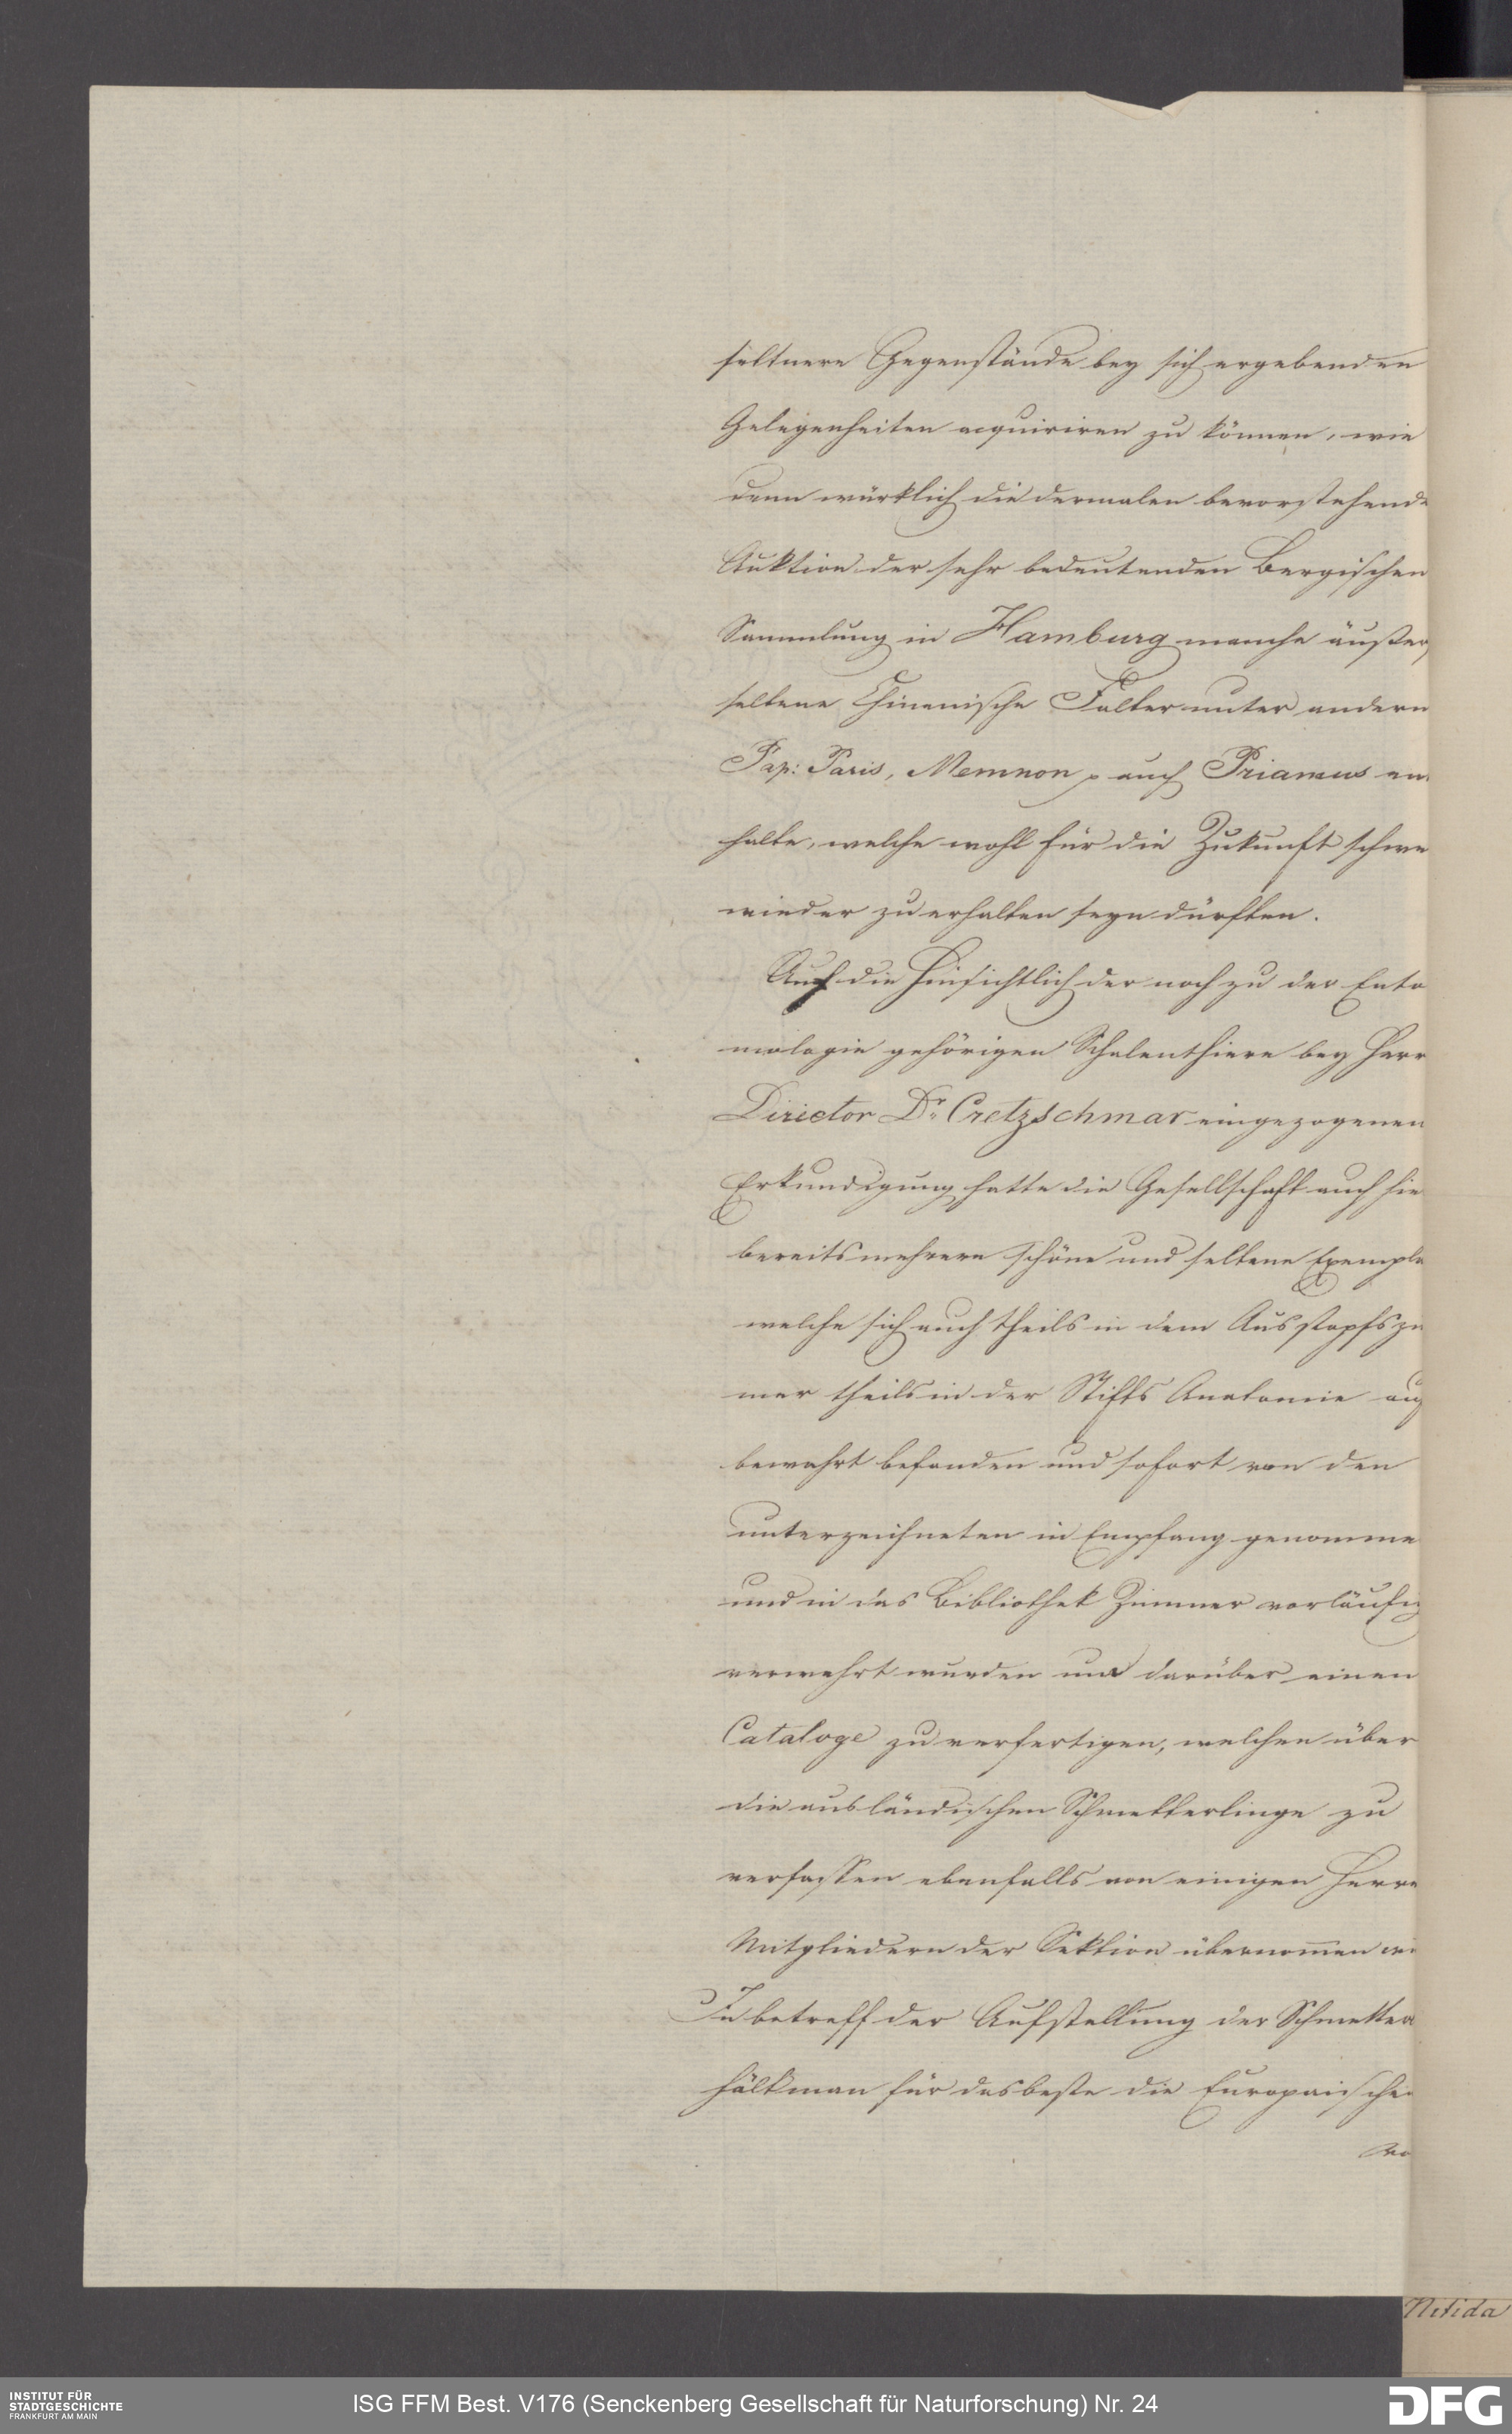 seltnere Gegenstände bey sich ergebenden
Gelegenheiten acquiriren zu können, wie
denn würklich die dermalen bevorstehende
Auktion der sehr bedeutenden Bergischen
Sammlung in Hamburg manche äußer
seltene Chinenische Falter unter andern
Pap: Paris, Memnon p auch Priamus en
halte, welche wohl für die Zukunft schwe
wieder zu erhalten seyn dürften.
Auf die hinsichtlich der noch zu der Ento
mologie gehörigen Schalenthiere bey Herr
Director Dr. Cretzschmar eingezogenen
Erkundigung hatte die Gesellschaft auch hie
bereits mehrere schöne und seltene Exempla
welche sich auch theils in dem Ausstopfszi
mer theils in der Stifts Anatomie auf
bewahrt befanden und sofort von den
unterzeichneten in Empfang genomme
und in das Bibliothek Zimmer vorläufig
verwahrt wurden um darüber einen
Cataloge zu verfertigen, welchen über
die ausländischen Schmetterlinge zu
verfassen ebenfalls von einigen Herre
Mitgliedern der Sektion übernom̅en wi
In betreff der Aufstellung der Schmetter
hält man für das beste die Europaischen
vo
Nitida
INSTITUT FÜR
STADTGESCHICHTE
FRANKFURT AM MAIN
ISG FFM Best. V176 (Senckenberg Gesellschaft für Naturforschung) Nr. 24
DFG